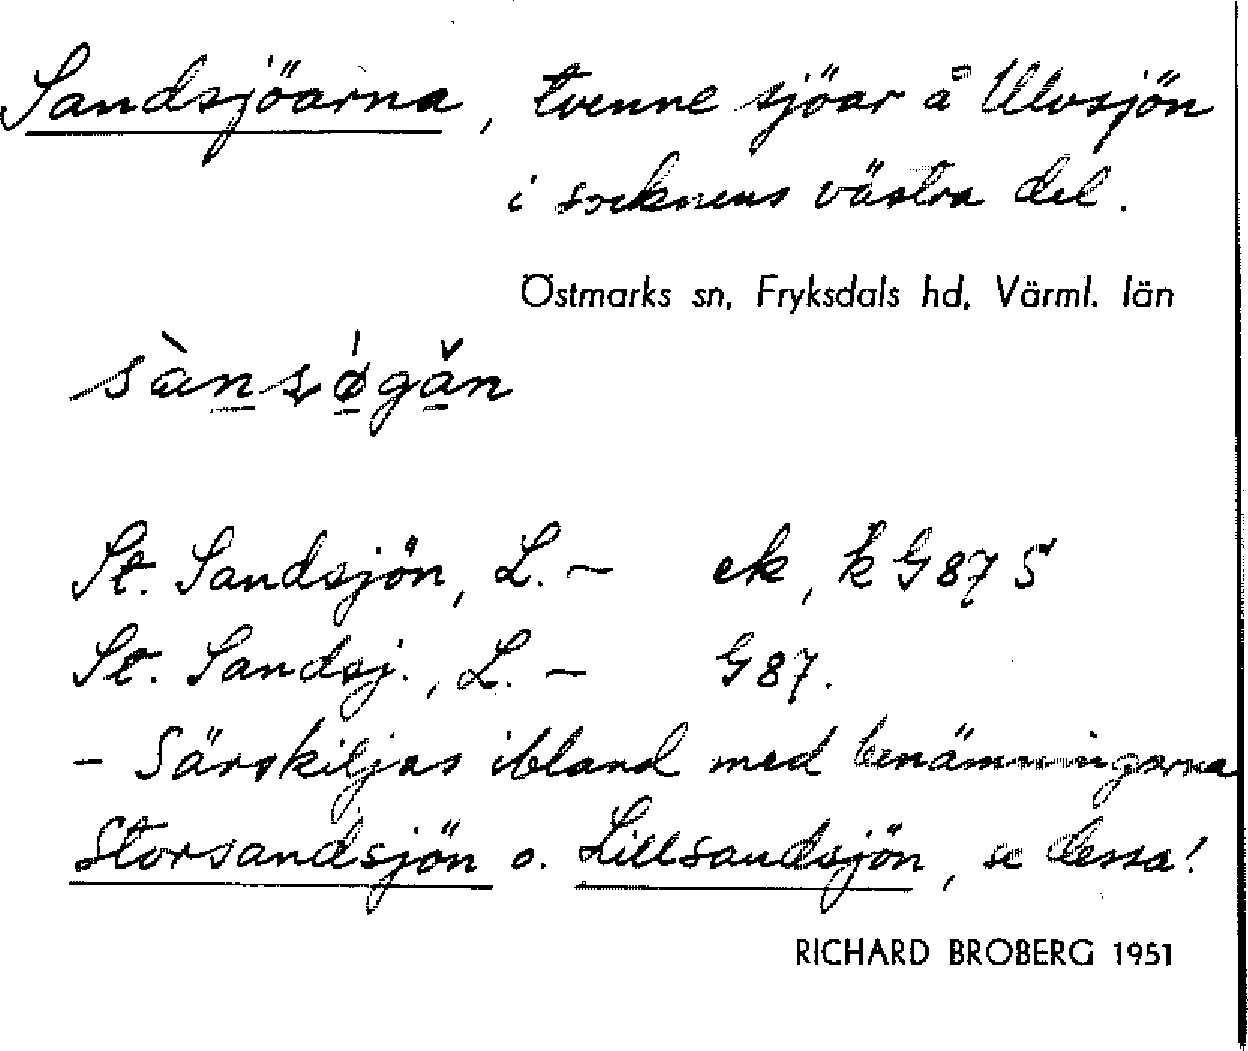 Sandsjöarna, tvenne sjöar å Ulvsjön
i socknens västra del.
Östmarks sn, Fryksdals hd, Värml. län
St. Sandsjön, L. – ek, k G87 S
St. Sandsj., L. – G87.
– Särskiljas ibland med benämningarna
Storsandsjön o. Lillsandsjön, se dessa!
RICHARD BROBERG 1951